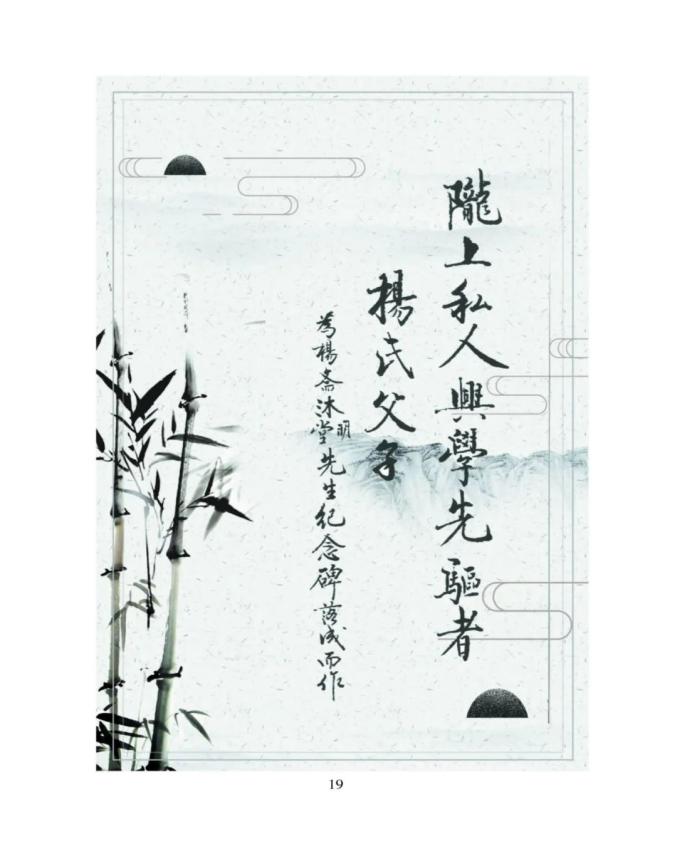 隴上私人興學先驅者
楊氏父子
為楊斋沐明堂先生纪念碑落成而作
19